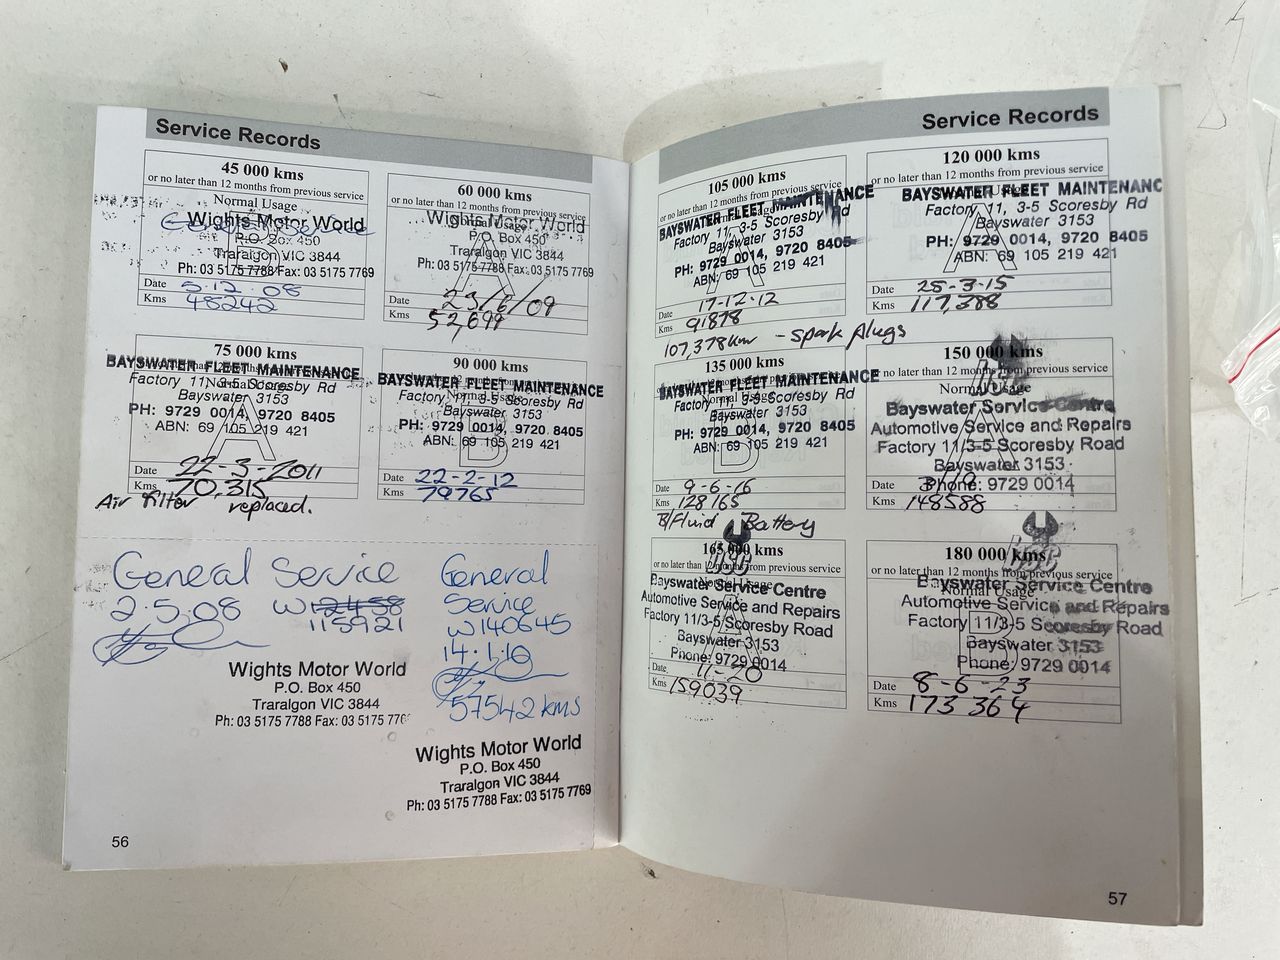 Service Records
45 000 kms
or no later than 12 months from previous service
Normal Usage
Wights Motor World
P.O. Box 450
Traralgon VIC 3844
Ph: 03 5175 7788 Fax: 03 5175 7769
Date 5.12.08
Kms 48242
60 000 kms
or no later than 12 months from previous service
Normal Usage
Wights Motor World
P.O. Box 450
Traralgon VIC 3844
Ph: 03 5175 7788 Fax: 03 5175 7769
A
Date 23/6/09
Kms 52,699
75 000 kms
BAYSWATER FLEET MAINTENANCE
Factory 11, 3-5 Scoresby Rd
Bayswater 3153
PH: 9729 0014, 9720 8405
ABN: 69 105 219 421
A
Date 22-3-2011
Kms 70,315
Air filter replaced.
90 000 kms
BAYSWATER FLEET MAINTENANCE
Normal Usage
Factory 11, 3-5 Scoresby Rd
Bayswater 3153
PH: 9729 0014, 9720 8405
ABN: 69 105 219 421
B
Date 22-2-12
Kms 79765
General Service
2.5.08 W12458
115921
Wights Motor World
P.O. Box 450
Traralgon VIC 3844
Ph: 03 5175 7788 Fax: 03 5175 776
General
Service
W140645
14.1.10
57542 kms
Wights Motor World
P.O. Box 450
Traralgon VIC 3844
Ph: 03 5175 7788 Fax: 03 5175 7769
56
Service Records
105 000 kms
or no later than 12 months from previous service
BAYSWATER FLEET MAINTENANCE
Factory 11, 3-5 Scoresby Rd
Bayswater 3153
PH: 9729 0014, 9720 8405
ABN: 69 105 219 421
A
Date 17-12-12
Kms 91878
107,378km - spark plugs
120 000 kms
or no later than 12 months from previous service
BAYSWATER FLEET MAINTENANC
Factory 11, 3-5 Scoresby Rd
Bayswater 3153
PH: 9729 0014, 9720 8405
ABN: 69 105 219 421
A
Date 25-3-15
Kms 117,388
135 000 kms
BAYSWATER FLEET MAINTENANCE
Factory 11, 3-5 Scoresby Rd
Bayswater 3153
PH: 9729 0014, 9720 8405
ABN: 69 105 219 421
B
Date 9-6-16
Kms 128165
B/Fluid Battery
150 000 kms
Normal Usage
Bayswater Service Centre
Automotive Service and Repairs
Factory 11/3-5 Scoresby Road
Bayswater 3153
Phone: 9729 0014
Date
Kms 148588
165 000 kms
or no later than 12 months from previous service
Normal Usage
Bayswater Service Centre
Automotive Service and Repairs
Factory 11/3-5 Scoresby Road
Bayswater 3153
Phone: 9729 0014
A
Date 11-20
Kms 159039
180 000 kms
or no later than 12 months from previous service
Normal Usage
Bayswater Service Centre
Automotive Service and Repairs
Factory 11/3-5 Scoresby Road
Bayswater 3153
Phone: 9729 0014
B
Date 8-6-23
Kms 173 364
57